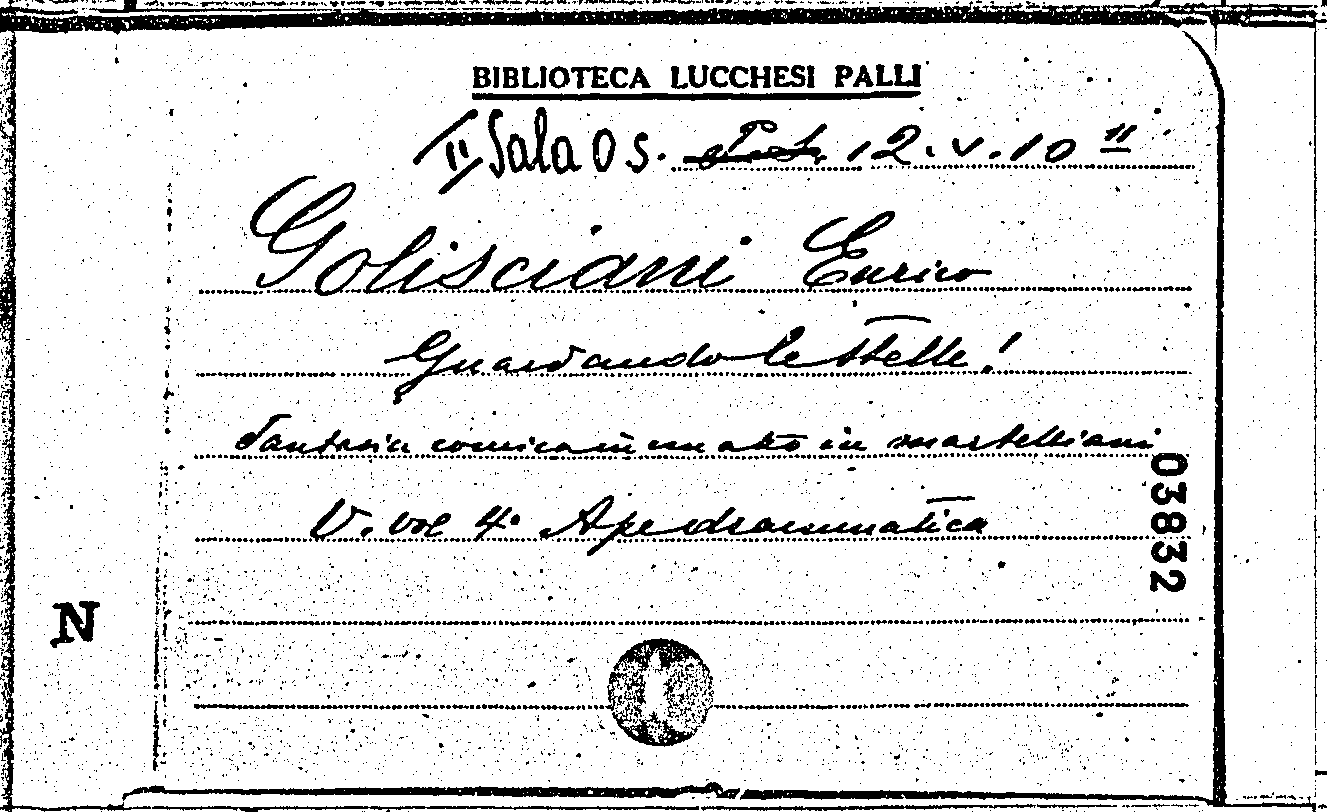 BIBLIOTECA LUCCHESI PALLI
II Sala O S. 12. V. 10 11
Golisciani Enrico
Guardando le stelle!
Fantasia comica in un atto in martelliani
V. vol 4° Ape drammatica
03832
N